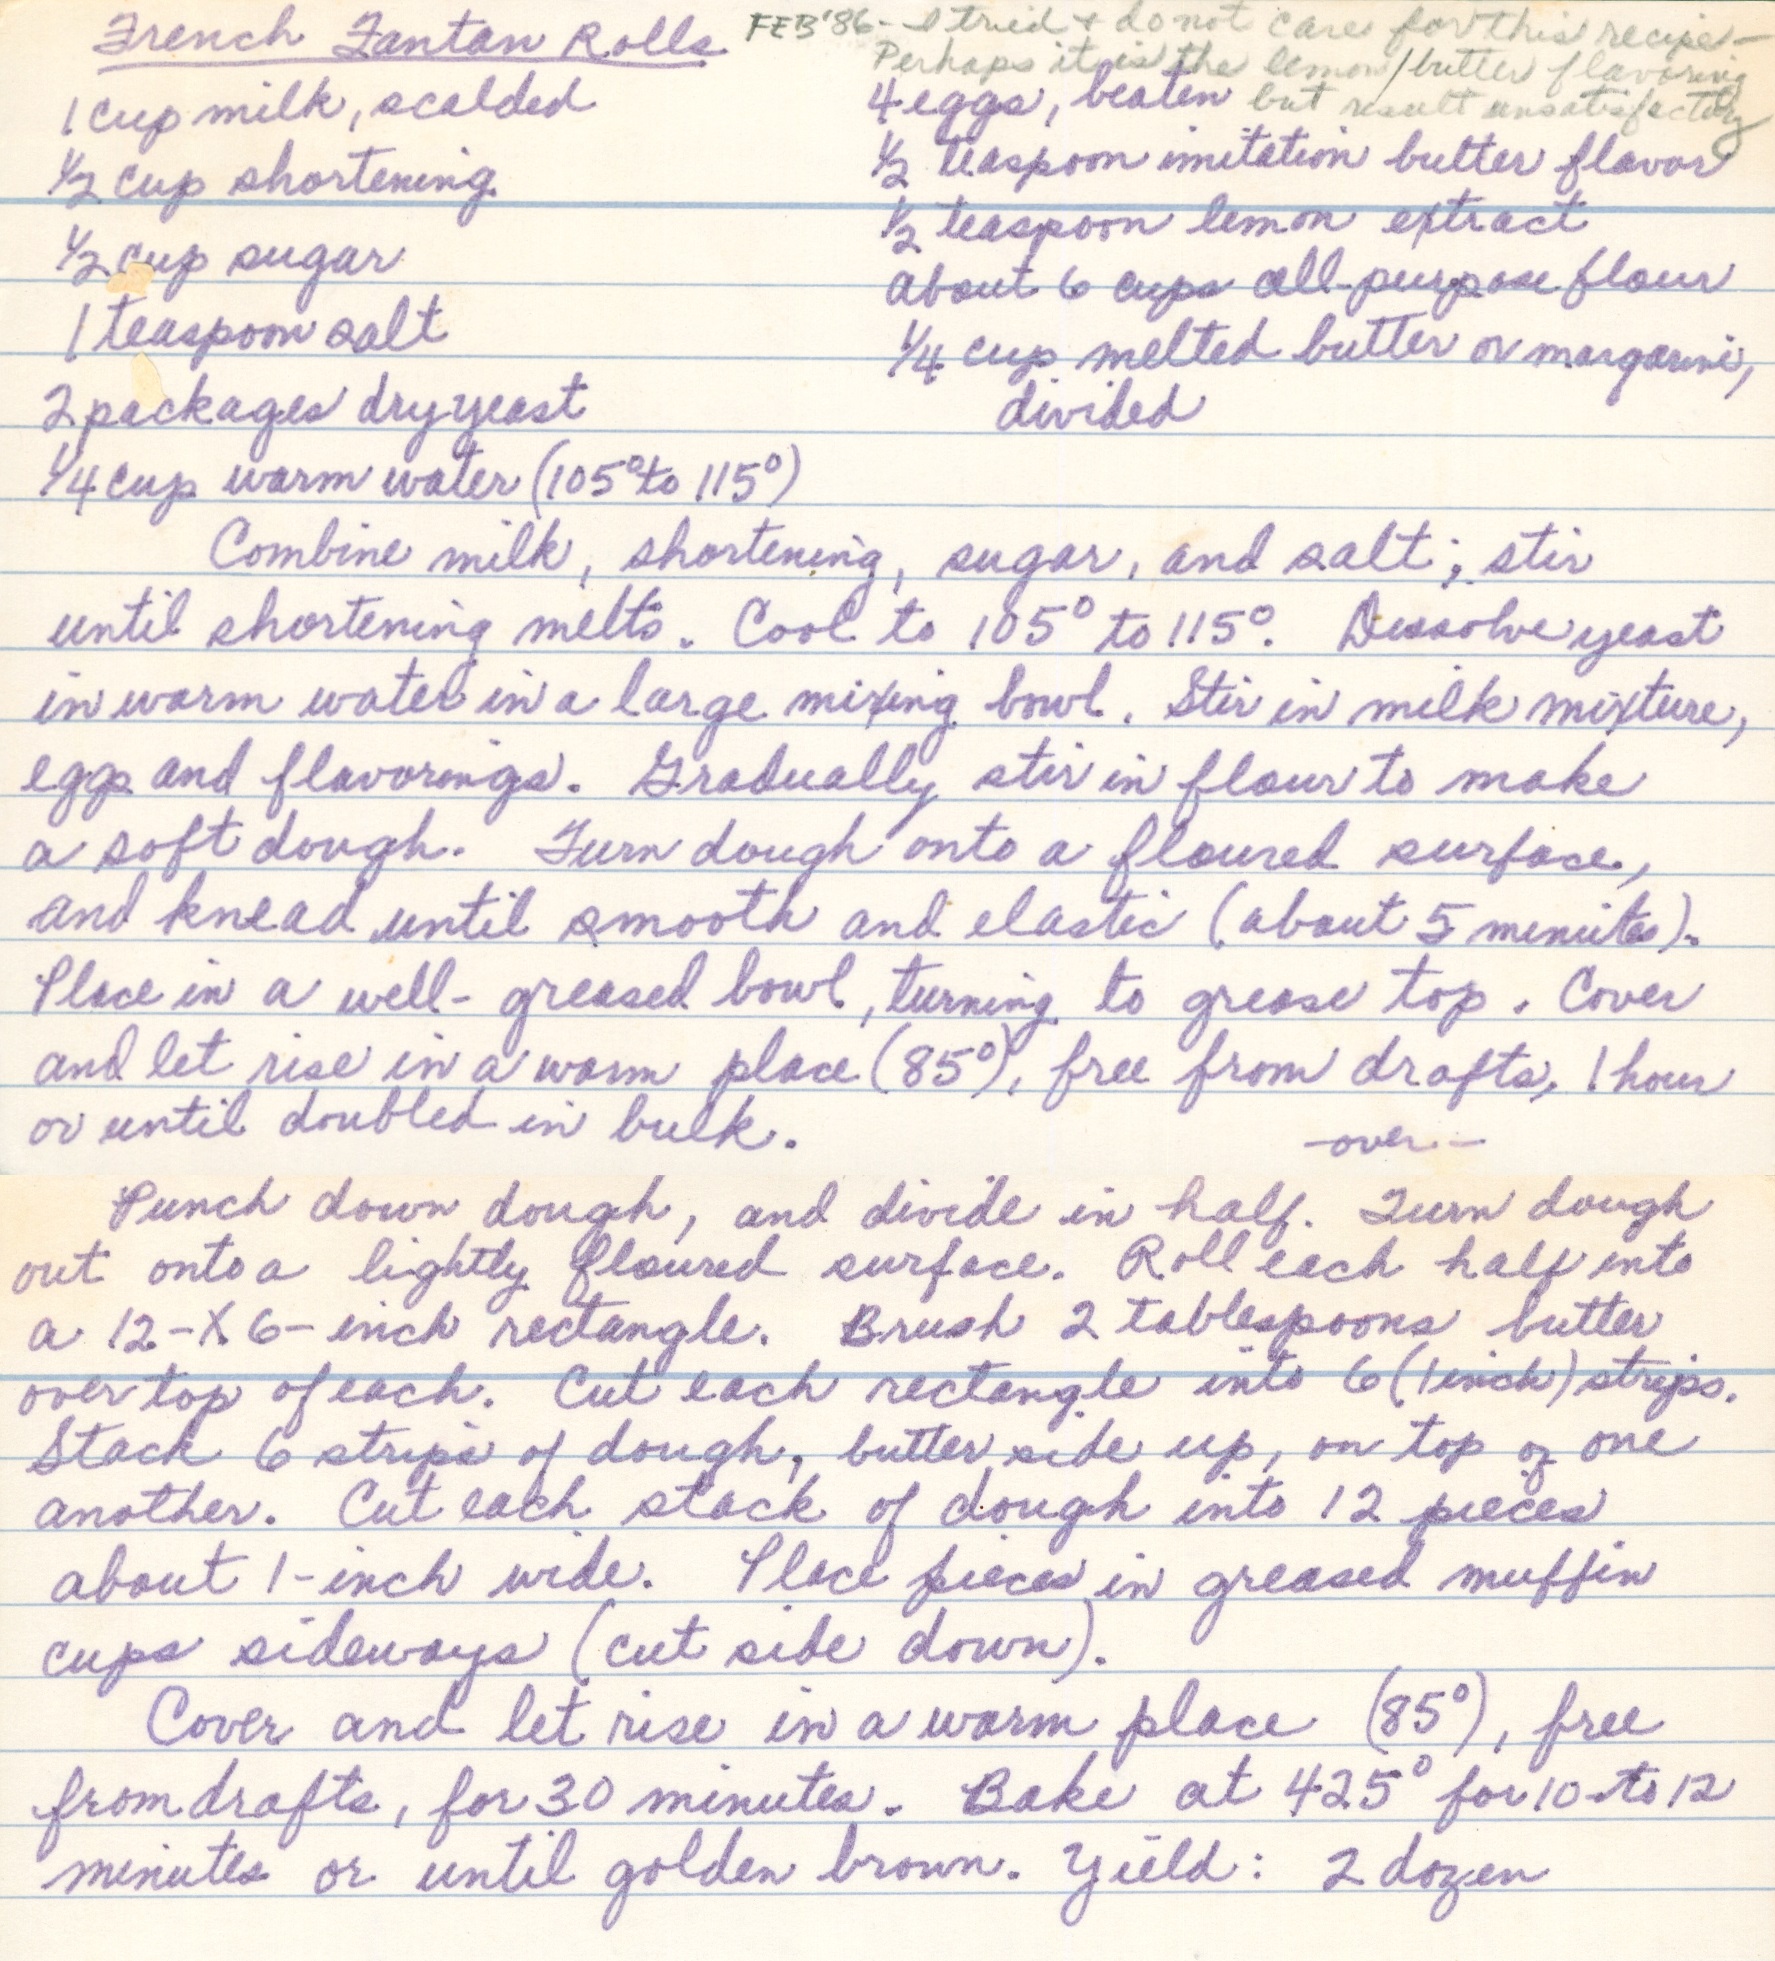 French Fantan Rolls
FEB '86 - I tried + do not care for this recipe -
Perhaps it is the lemon/butter flavoring
but result unsatisfactory
1 cup milk, scalded
½ cup shortening
½ cup sugar
1 teaspoon salt
2 packages dry yeast
¼ cup warm water (105° to 115°)
4 eggs, beaten
½ teaspoon imitation butter flavor
½ teaspoon lemon extract
about 6 cups all-purpose flour
¼ cup melted butter or margarine,
divided
Combine milk, shortening, sugar, and salt; stir
until shortening melts. Cool to 105° to 115°. Dissolve yeast
in warm water in a large mixing bowl. Stir in milk mixture,
eggs and flavorings. Gradually stir in flour to make
a soft dough. Turn dough onto a floured surface,
and knead until smooth and elastic (about 5 minutes).
Place in a well-greased bowl, turning to grease top. Cover
and let rise in a warm place (85°), free from drafts, 1 hour
or until doubled in bulk.
-over-
Punch down dough, and divide in half. Turn dough
out onto a lightly floured surface. Roll each half into
a 12-X 6-inch rectangle. Brush 2 tablespoons butter
over top of each. Cut each rectangle into 6 (1 inch) strips.
Stack 6 strips of dough, butter side up, on top of one
another. Cut each stack of dough into 12 pieces
about 1-inch wide. Place pieces in greased muffin
cups sideways (cut side down).
Cover and let rise in a warm place (85°), free
from drafts, for 30 minutes. Bake at 425° for 10 to 12
minutes or until golden brown. Yield: 2 dozen